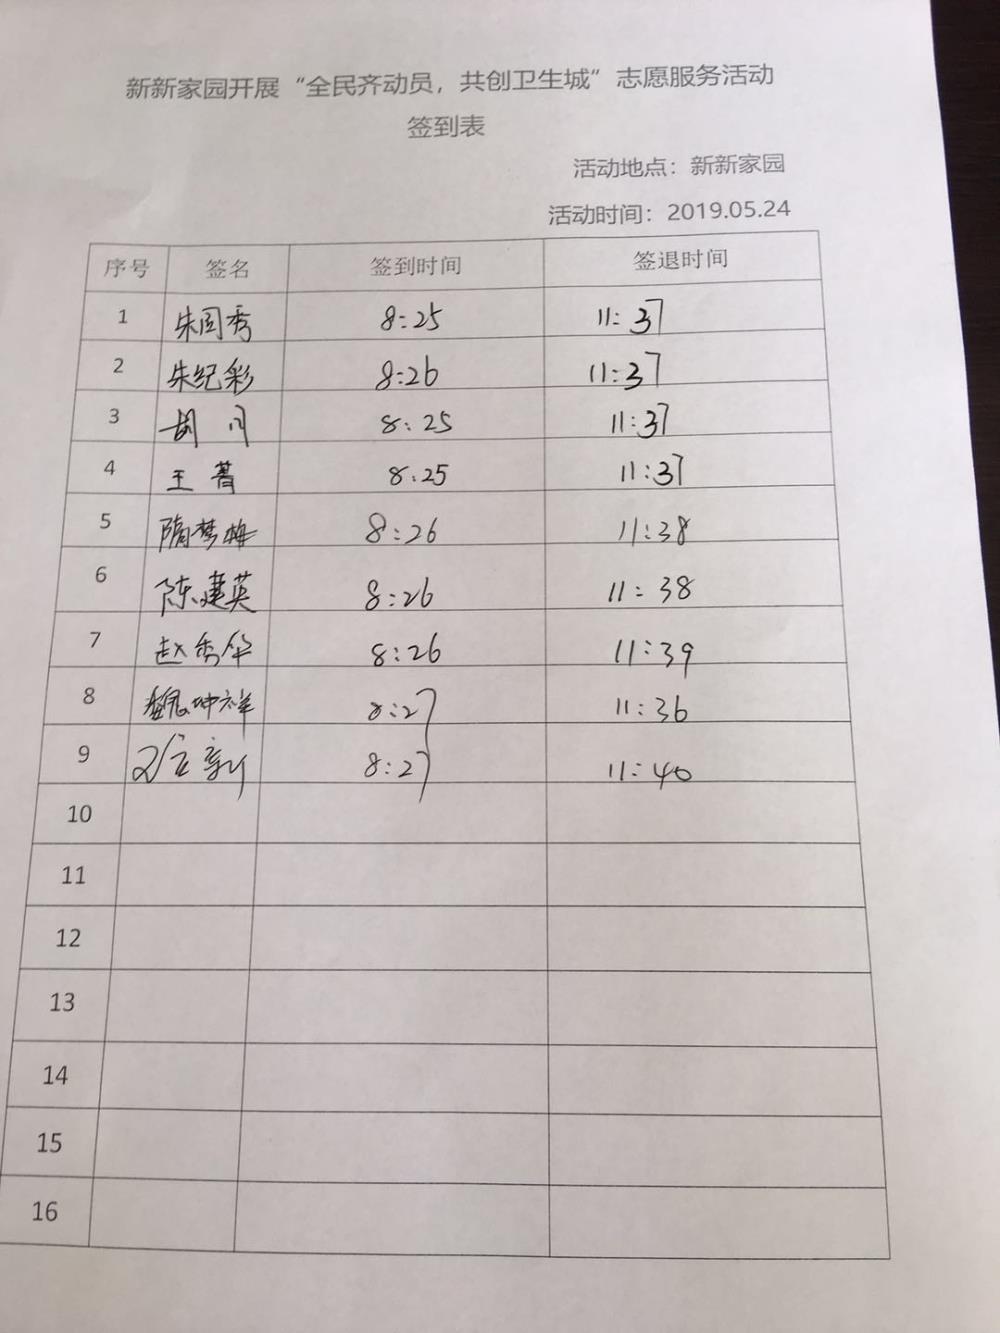 新新家园开展“全民齐动员，共创卫生城”志愿服务活动
签到表
活动地点：新新家园
活动时间：2019.05.24
序号 签名 签到时间 签退时间
1 朱秀 8:25 11:37
2 朱纪彩 8:26 11:37
3 胡 8:25 11:37
4 王菁 8:25 11:37
5 隋梦梅 8:26 11:38
6 陈建英 8:26 11:38
7 赵秀华 8:26 11:39
8 魏坤祥 8:27 11:36
9 8:27 11:40
10
11
12
13
14
15
16